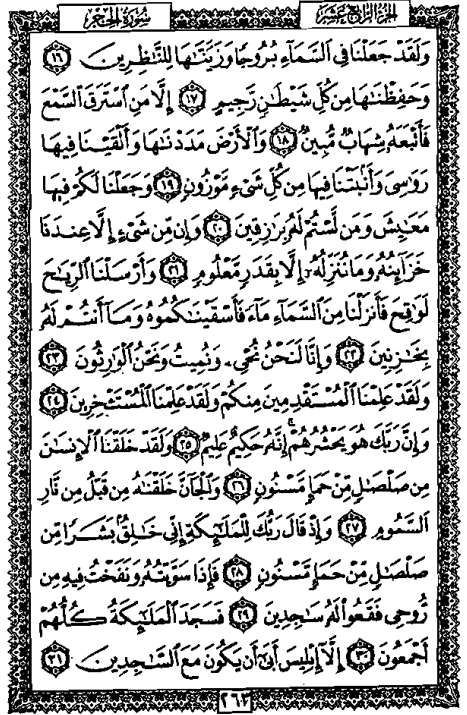 الجزء الرابع عشر
سورة الحجر
وَلَقَدْ جَعَلْنَا فِي السَّمَاءِ بُرُوجًا وَزَيَّنَّـٰهَا لِلنَّـٰظِرِينَ ١٦
وَحَفِظْنَـٰهَا مِن كُلِّ شَيْطَـٰنٍ رَّجِيمٍ ١٧ إِلَّا مَنِ اسْتَرَقَ السَّمْعَ
فَأَتْبَعَهُ شِهَابٌ مُّبِينٌ ١٨ وَالْأَرْضَ مَدَدْنَـٰهَا وَأَلْقَيْنَا فِيهَا
رَوَٰسِيَ وَأَنۢبَتْنَا فِيهَا مِن كُلِّ شَيْءٍ مَّوْزُونٍ ١٩ وَجَعَلْنَا لَكُمْ فِيهَا
مَعَـٰيِشَ وَمَن لَّسْتُمْ لَهُ بِرَٰزِقِينَ ٢٠ وَإِن مِّن شَيْءٍ إِلَّا عِندَنَا
خَزَآئِنُهُ وَمَا نُنَزِّلُهُ إِلَّا بِقَدَرٍ مَّعْلُومٍ ٢١ وَأَرْسَلْنَا الرِّيَـٰحَ
لَوَٰقِحَ فَأَنزَلْنَا مِنَ السَّمَاءِ مَاءً فَأَسْقَيْنَـٰكُمُوهُ وَمَا أَنتُمْ لَهُ
بِخَـٰزِنِينَ ٢٢ وَإِنَّا لَنَحْنُ نُحْيِۦ وَنُمِيتُ وَنَحْنُ الْوَٰرِثُونَ ٢٣
وَلَقَدْ عَلِمْنَا الْمُسْتَقْدِمِينَ مِنكُمْ وَلَقَدْ عَلِمْنَا الْمُسْتَـْٔخِرِينَ ٢٤
وَإِنَّ رَبَّكَ هُوَ يَحْشُرُهُمْ إِنَّهُ حَكِيمٌ عَلِيمٌ ٢٥ وَلَقَدْ خَلَقْنَا الْإِنسَـٰنَ
مِن صَلْصَـٰلٍ مِّنْ حَمَإٍ مَّسْنُونٍ ٢٦ وَالْجَآنَّ خَلَقْنَـٰهُ مِن قَبْلُ مِن نَّارِ
السَّمُومِ ٢٧ وَإِذْ قَالَ رَبُّكَ لِلْمَلَـٰٓئِكَةِ إِنِّي خَـٰلِقٌۢ بَشَرًا مِّن
صَلْصَـٰلٍ مِّنْ حَمَإٍ مَّسْنُونٍ ٢٨ فَإِذَا سَوَّيْتُهُ وَنَفَخْتُ فِيهِ مِن
رُّوحِي فَقَعُوا لَهُ سَـٰجِدِينَ ٢٩ فَسَجَدَ الْمَلَـٰٓئِكَةُ كُلُّهُمْ
أَجْمَعُونَ ٣٠ إِلَّا إِبْلِيسَ أَبَىٰ أَن يَكُونَ مَعَ السَّـٰجِدِينَ ٣١
٢٦٣